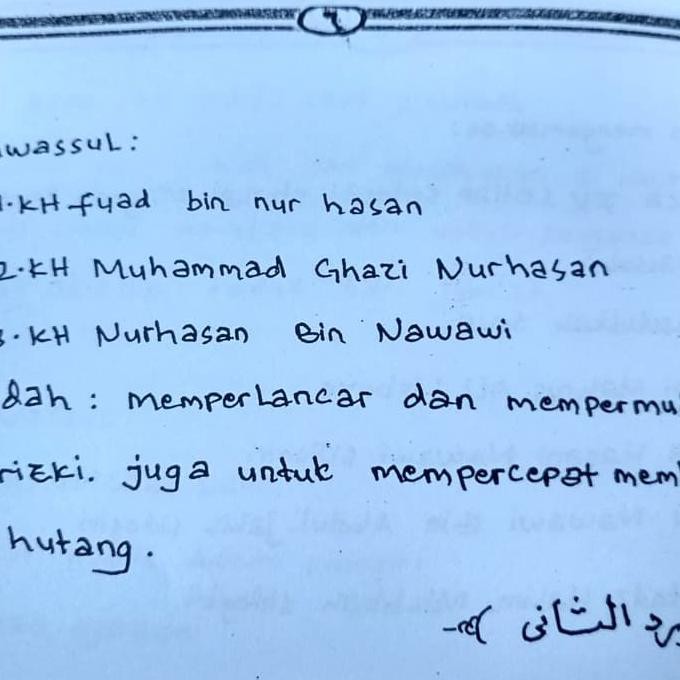 ٦
wassul:
1. KH fuad bin nur hasan
2. KH Muhammad Ghazi Nurhasan
3. KH Nurhasan Bin Nawawi
dah : memperlancar dan mempermu
rizki. juga untuk mempercepat mem
hutang.
رد الثانى